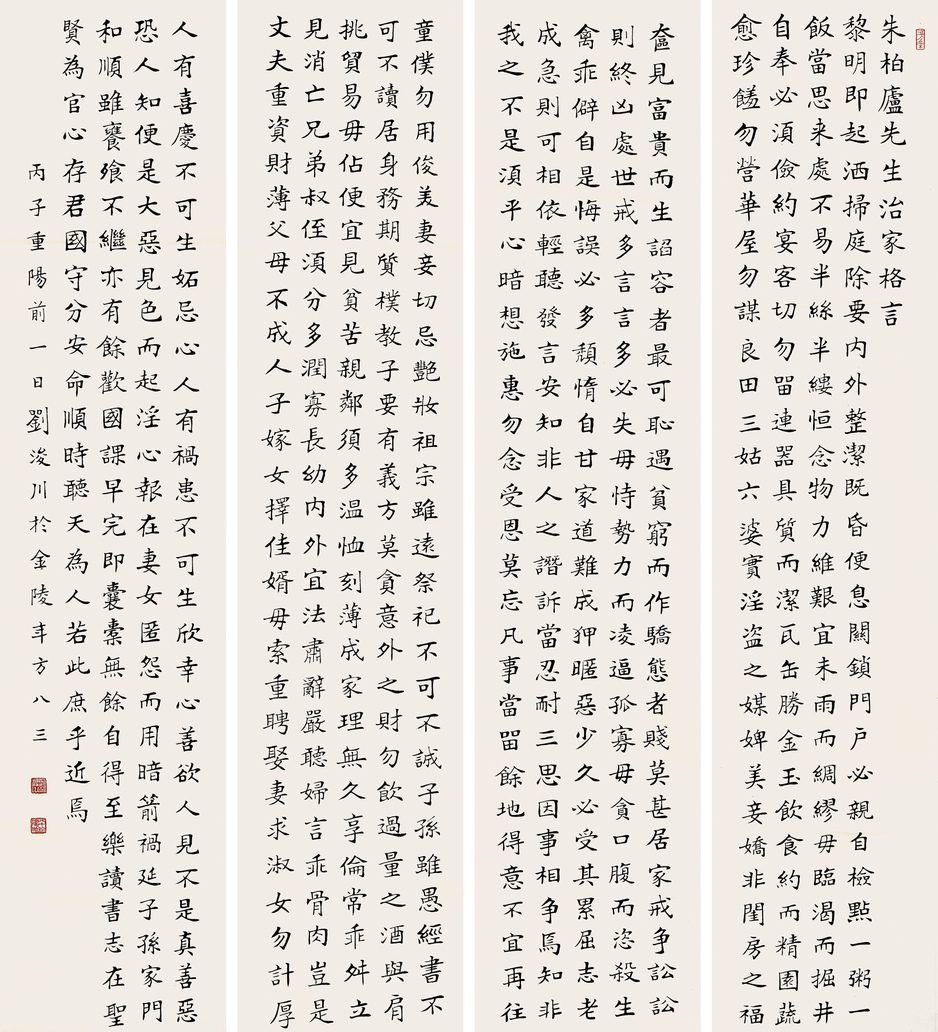 朱柏廬先生治家格言
黎明即起洒掃庭除要内外整潔既昏便息關鎖門户必親自檢點一粥一
飯當思来處不易半絲半縷恒念物力維艱宜未雨而綢繆毋臨渴而掘井
自奉必湏儉約宴客切勿畱連器具質而潔瓦缶勝金玉飲食約而精園蔬
愈珍饈勿營華屋勿謀良田三姑六婆實淫盗之媒婢美妾嬌非閨房之福
奩見富貴而生諂容者最可恥遇貧窮而作驕態者賤莫甚居家戒争訟訟
則終凶處世戒多言言多必失毋恃勢力而凌逼孤寡毋貪口腹而恣殺生
禽乖僻自是悔誤必多頹惰自甘家道難成狎暱惡少久必受其累屈志老
成急則可相依輕聽發言安知非人之譖訴當忍耐三思因事相争焉知非
我之不是湏平心暗想施惠勿念受恩莫忘凡事當畱餘地得意不宜再往
童僕勿用俊美妻妾切忌艷妝祖宗雖遠祭祀不可不誠子孫雖愚經書不
可不讀居身務期質樸教子要有義方莫貪意外之財勿飲過量之酒與肩
挑貿易毋佔便宜見貧苦親鄰須多温恤刻薄成家理無久享倫常乖舛立
見消亡兄弟叔侄湏分多潤寡長幼内外宜法肅辭嚴聽婦言乖骨肉豈是
丈夫重資財薄父母不成人子嫁女擇佳婿毋索重聘娶妻求淑女勿計厚
人有喜慶不可生妬忌心人有禍患不可生欣幸心善欲人見不是真善惡
恐人知便是大惡見色而起淫心報在妻女匿怨而用暗箭禍延子孫家門
和順雖饔飧不繼亦有餘歡國課早完即囊橐無餘自得至樂讀書志在聖
賢為官心存君國守分安命順時聽天為人若此庶乎近焉
丙子重陽前一日劉浚川於金陵年方八三